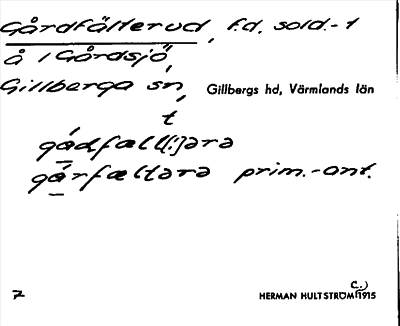 Gårdfälterud, f.d. sold.-t
å 1 Gårdsjö,
Gillberga sn, Gillbergs hd, Värmlands län
t
gádfæl[l:]ərə
gárfæltərə prim.-ont.
7
c.)
HERMAN HULTSTRÖM 1915